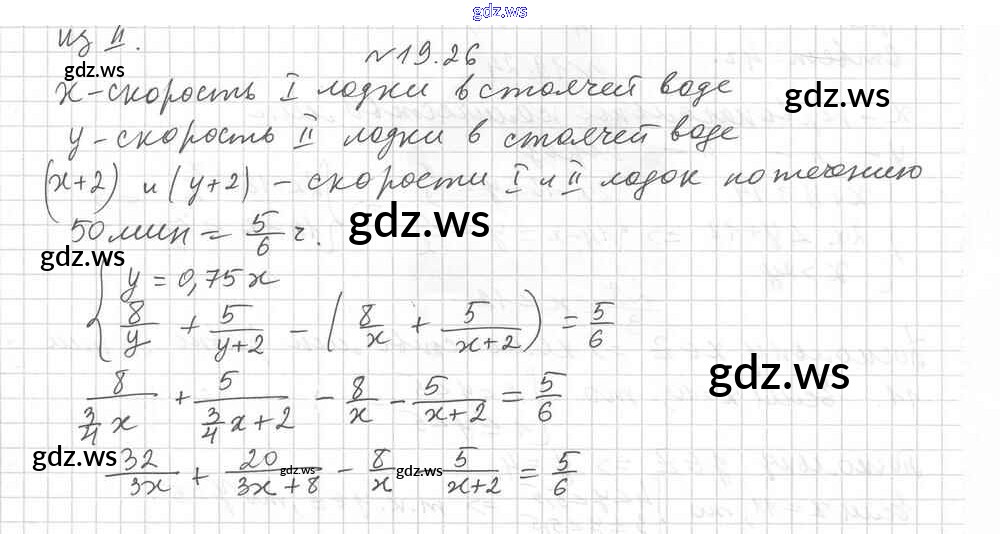 gdz.ws
из II.
№19.26
gdz.ws
x-скорость I лодки в стоячей воде
gdz.ws
y-скорость II лодки в стоячей воде
(x+2) и (y+2) - скорости I и II лодок по течению
gdz.ws
50 мин = 5/6 ч.
gdz.ws
{ y = 0,75x
8/y + 5/(y+2) - (8/x + 5/(x+2)) = 5/6
gdz.ws
8/(3/4 x) + 5/(3/4 x+2) - 8/x - 5/(x+2) = 5/6
gdz.ws
32/3x + 20/(3x+8) - 8/x - 5/(x+2) = 5/6
gdz.ws
gdz.ws